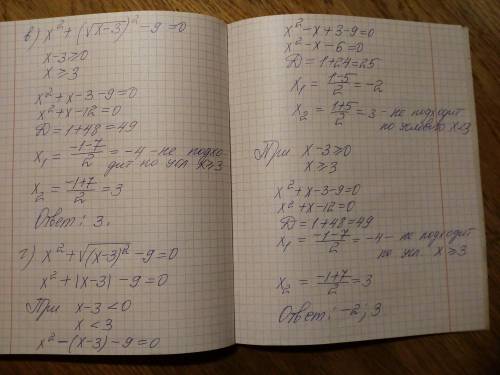 в) x² + (√x-3)² - 9 = 0
x-3 ≥ 0
x ≥ 3
x² + x - 3 - 9 = 0
x² + x - 12 = 0
D = 1 + 48 = 49
x₁ = (-1-7)/2 = -4 - не подхо-
дит по усл. x ≥ 3
x₂ = (-1+7)/2 = 3
Ответ: 3.
г) x² + √(x-3)² - 9 = 0
x² + |x-3| - 9 = 0
При x-3 < 0
x < 3
x² - (x-3) - 9 = 0
x² - x + 3 - 9 = 0
x² - x - 6 = 0
D = 1 + 24 = 25
x₁ = (1-5)/2 = -2
x₂ = (1+5)/2 = 3 - не подходит
по условию x<3
При x-3 ≥ 0
x ≥ 3
x² + x - 3 - 9 = 0
x² + x - 12 = 0
D = 1 + 48 = 49
x₁ = (-1-7)/2 = -4 - не подходит
по усл. x ≥ 3
x₂ = (-1+7)/2 = 3
Ответ: -2; 3